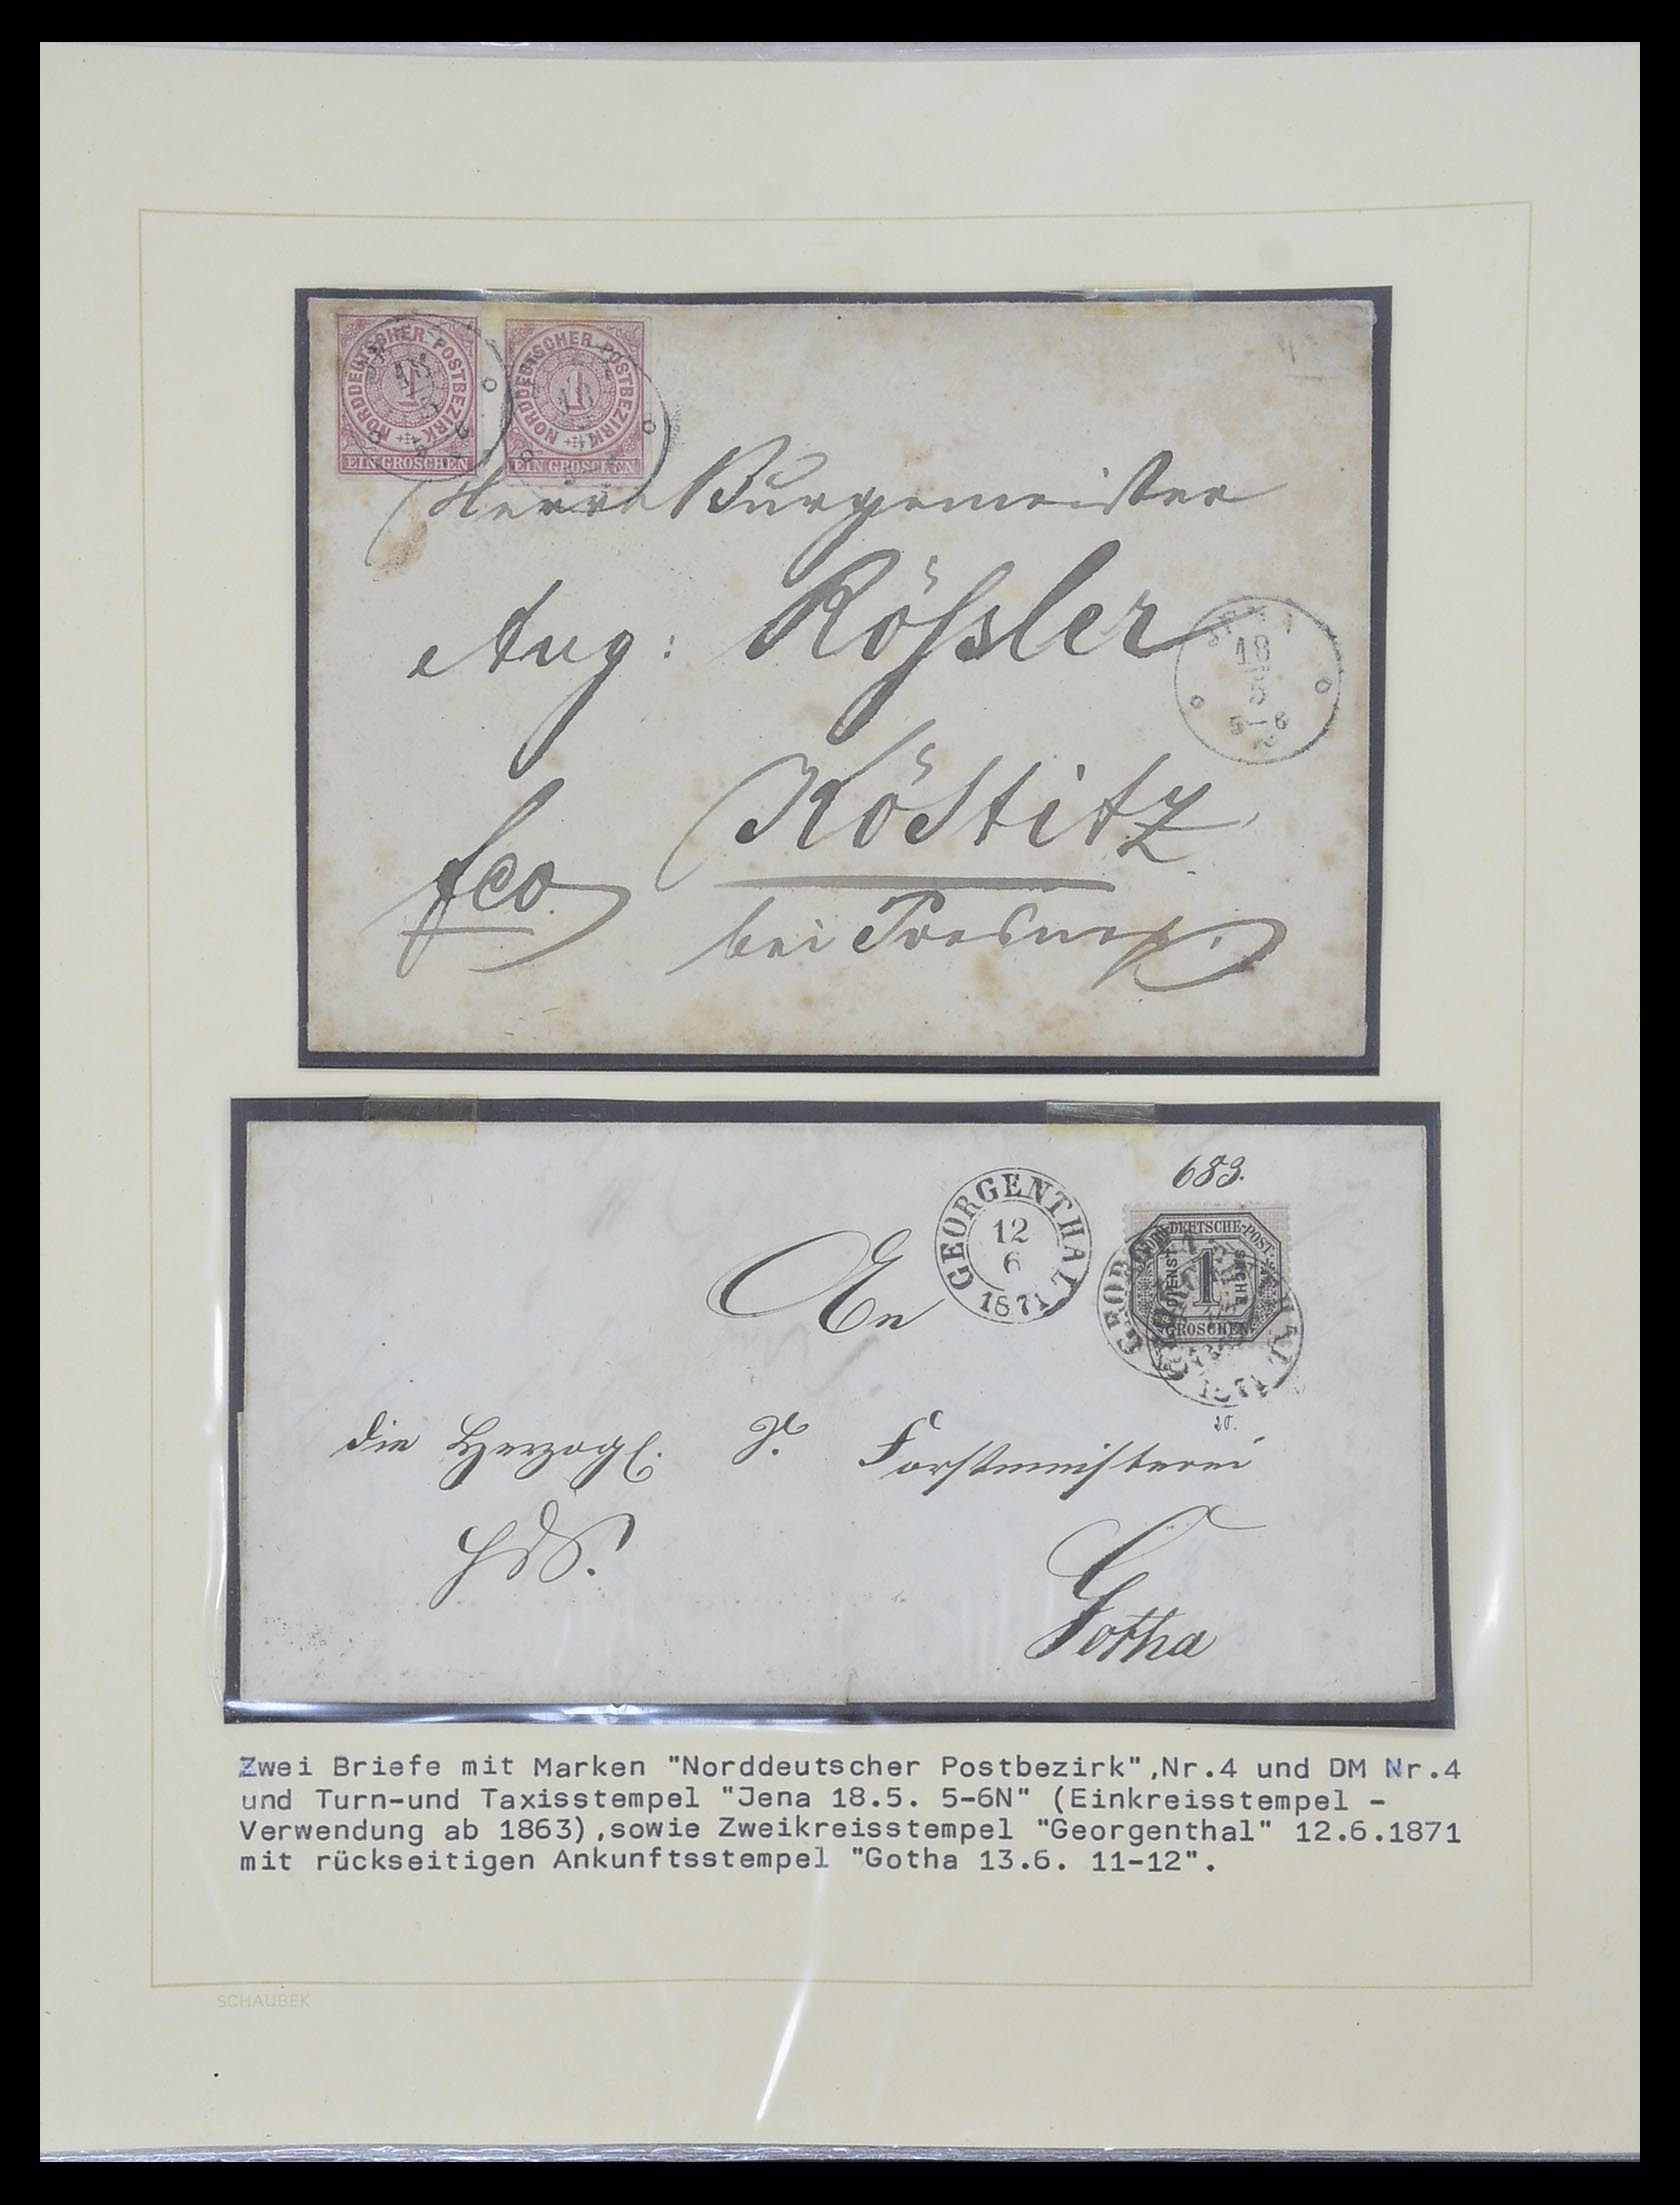 NORDDEUTSCHER POSTBEZIRK
1
EIN GROSCHEN
NORDDEUTSCHER POSTBEZIRK
1
EIN GROSCHEN
18
5
Herrn Burgemeister
Aug: Rößler
JENA
18
5
5-6
N
Köstitz
fco
bei
683.
GEORGENTHAL
12
6
1871
NORDD. DEUTSCHE POST.
DIENST SACHE
1
GROSCHEN
GEORGENTHAL
1871
An
20.
die Herzogl. S. Forstmeisterei
HdS.
Gotha
Zwei Briefe mit Marken "Norddeutscher Postbezirk",Nr.4 und DM Nr.4
und Turn-und Taxisstempel "Jena 18.5. 5-6N" (Einkreisstempel -
Verwendung ab 1863),sowie Zweikreisstempel "Georgenthal" 12.6.1871
mit rückseitigen Ankunftsstempel "Gotha 13.6. 11-12".
SCHAUBEK